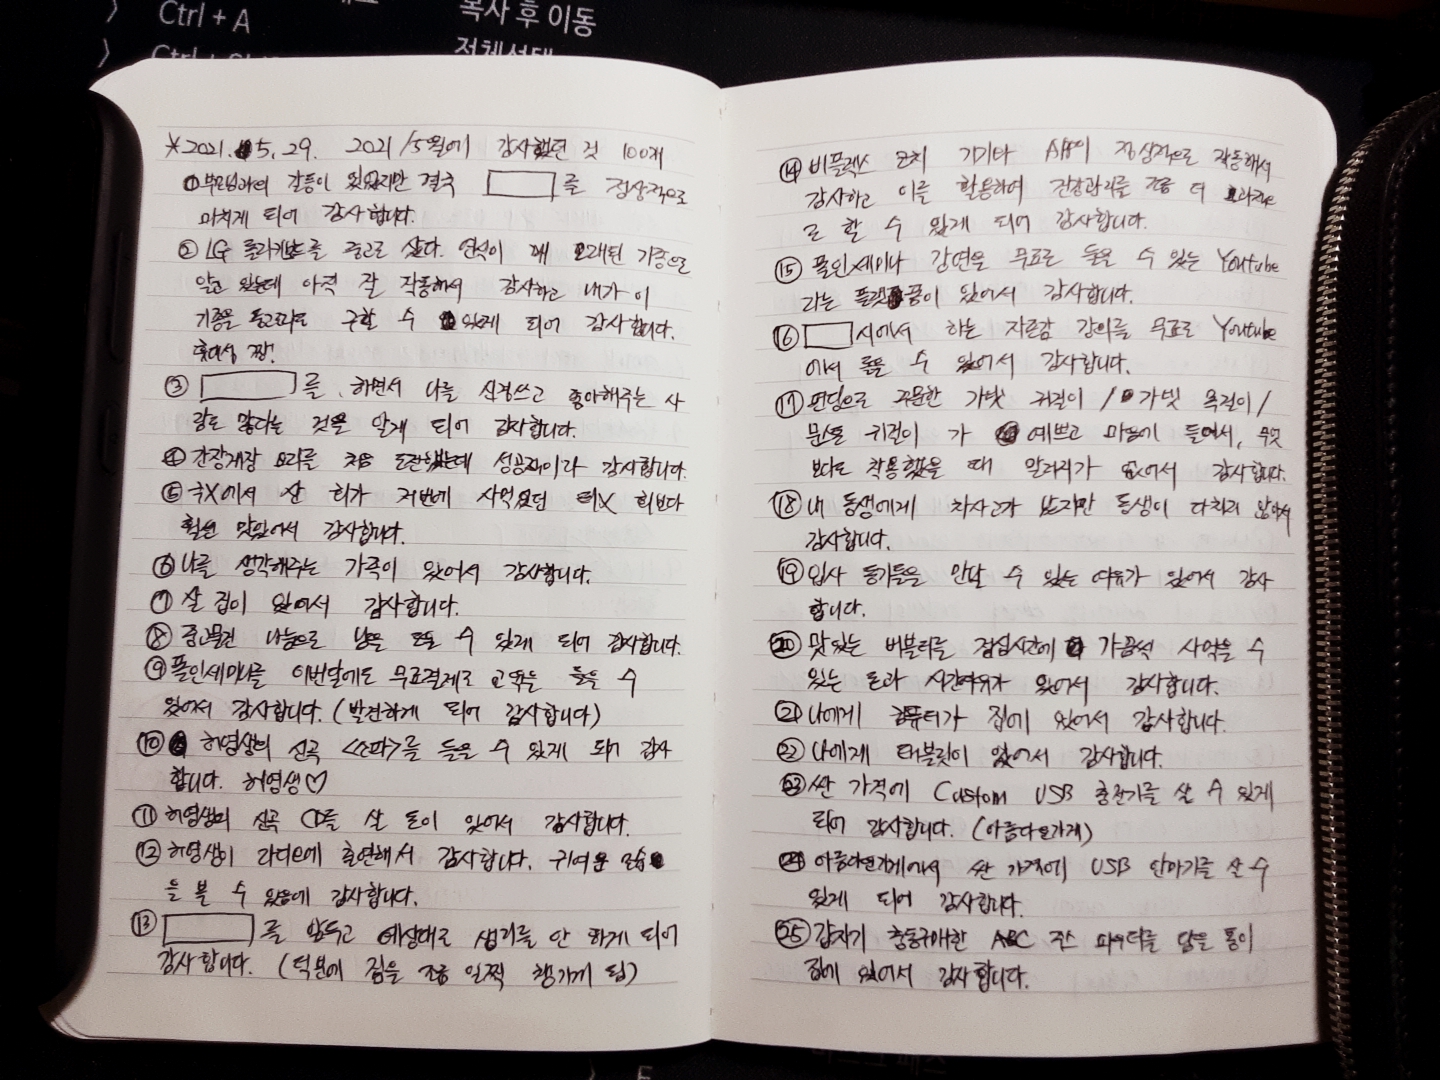 Ctrl + A
복사 후 이동
전체선택
*2021. 5. 29. 2021/5월에 감사했던 것 100개
① 부모님과의 갈등이 있었지만 결국 를 정상적으로
마치게 되어 감사합니다.
② LG 롤리키보드를 중고로 샀다. 연식이 꽤 오래된 기종으로
알고 있는데 아직 잘 작동해서 감사하고 내가 이
기종을 중고로라도 구할 수 있게 되어 감사합니다.
휴대성 짱!
③ 를 하면서 나를 신경쓰고 좋아해주는 사
람도 많다는 것을 알게 되어 감사합니다.
④ 간장계장 요리를 처음 도전했는데 성공적이라 감사합니다.
⑤ 쿠X에서 산 회가 저번에 사먹었던 회보다
훨씬 맛있어서 감사합니다.
⑥ 나를 생각해주는 가족이 있어서 감사합니다.
⑦ 살 집이 있어서 감사합니다.
⑧ 중고물건 나눔으로 남을 도울 수 있게 되어 감사합니다.
⑨ 폴인세미나를 이번달에도 무료결제로 교육을 들을 수
있어서 감사합니다. (발견하게 되어 감사합니다)
⑩ 허영생의 신곡 <소파>를 들을 수 있게 되어 감사
합니다. 허영생♡
⑪ 허영생의 신곡 CD를 살 돈이 있어서 감사합니다.
⑫ 허영생이 라디오에 출연해서 감사합니다. 귀여운 모습
을 볼 수 있음에 감사합니다.
⑬ 를 앞두고 예상대로 생리를 안 하게 되어
감사합니다. (덕분에 짐을 조금 일찍 챙기게 됨)
⑭ 비플렉스 코치 기기타 APP이 정상적으로 작동해서
감사하고 이를 활용하여 건강관리를 조금 더 효과적으
로 할 수 있게 되어 감사합니다.
⑮ 폴인세미나 강연을 무료로 들을 수 있는 Youtube
라는 플랫폼이 있어서 감사합니다.
⑯ 시에서 하는 자존감 강의를 무료로 Youtube
에서 들을 수 있어서 감사합니다.
⑰ 펀딩으로 주문한 가넷 귀걸이 / 가넷 목걸이 /
문스톤 귀걸이 가 예쁘고 마음에 들어서, 무엇
보다도 착용했을 때 알러지가 없어서 감사합니다.
⑱ 내 동생에게 차사고가 났지만 동생이 다치지 않아서
감사합니다.
⑲ 입사 동기들을 만날 수 있는 여유가 있어서 감사
합니다.
⑳ 맛있는 버블티를 점심시간에 가끔씩 사먹을 수
있는 돈과 시간여유가 있어서 감사합니다.
㉑ 나에게 컴퓨터가 집에 있어서 감사합니다.
㉒ 나에게 태블릿이 있어서 감사합니다.
㉓ 싼 가격에 Custom USB 충전기를 살 수 있게
되어 감사합니다. (아름다운가게)
㉔ 아름다운가게에서 싼 가격에 USB 안마기를 살 수
있게 되어 감사합니다.
㉕ 갑자기 충동구매한 ABC 주스 파우더를 담을 통이
집에 있어서 감사합니다.